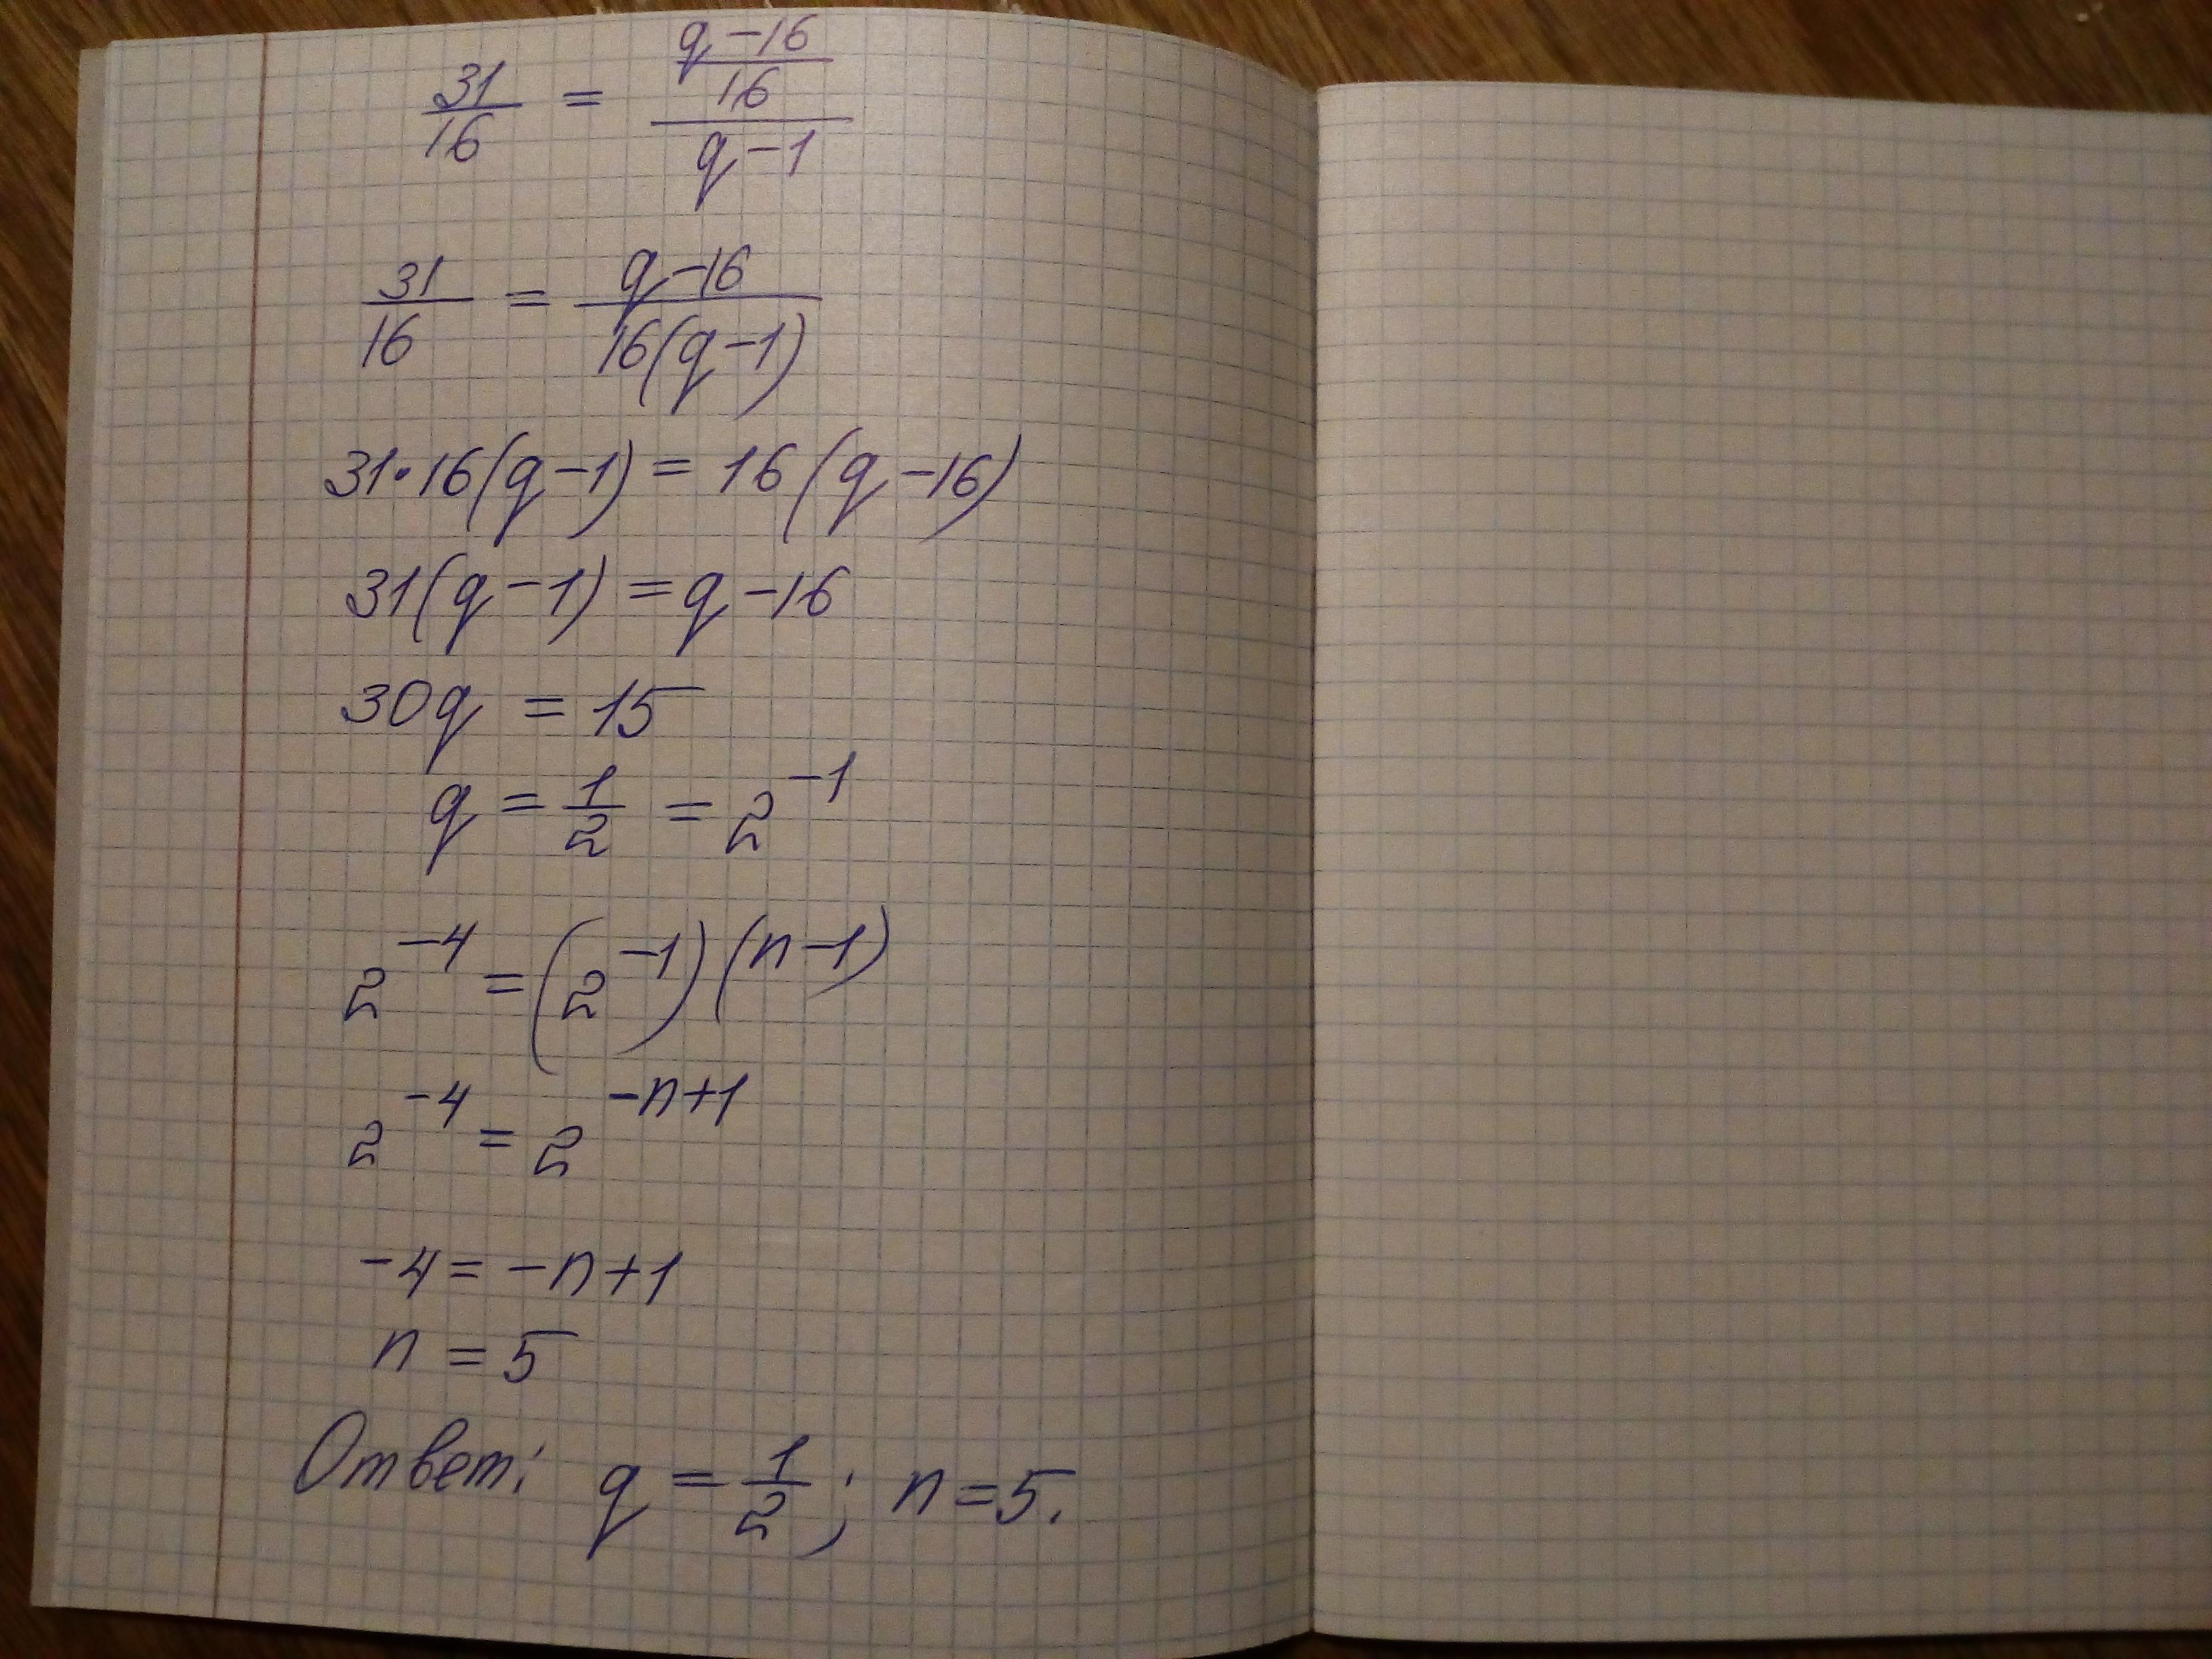 31/16 = ((q-16)/16)/(q-1)
31/16 = (q-16)/(16(q-1))
31·16(q-1) = 16(q-16)
31(q-1) = q-16
30q = 15
q = 1/2 = 2^(-1)
2^(-4) = (2^(-1))^(n-1)
2^(-4) = 2^(-n+1)
-4 = -n+1
n = 5
Ответ: q = 1/2; n = 5.